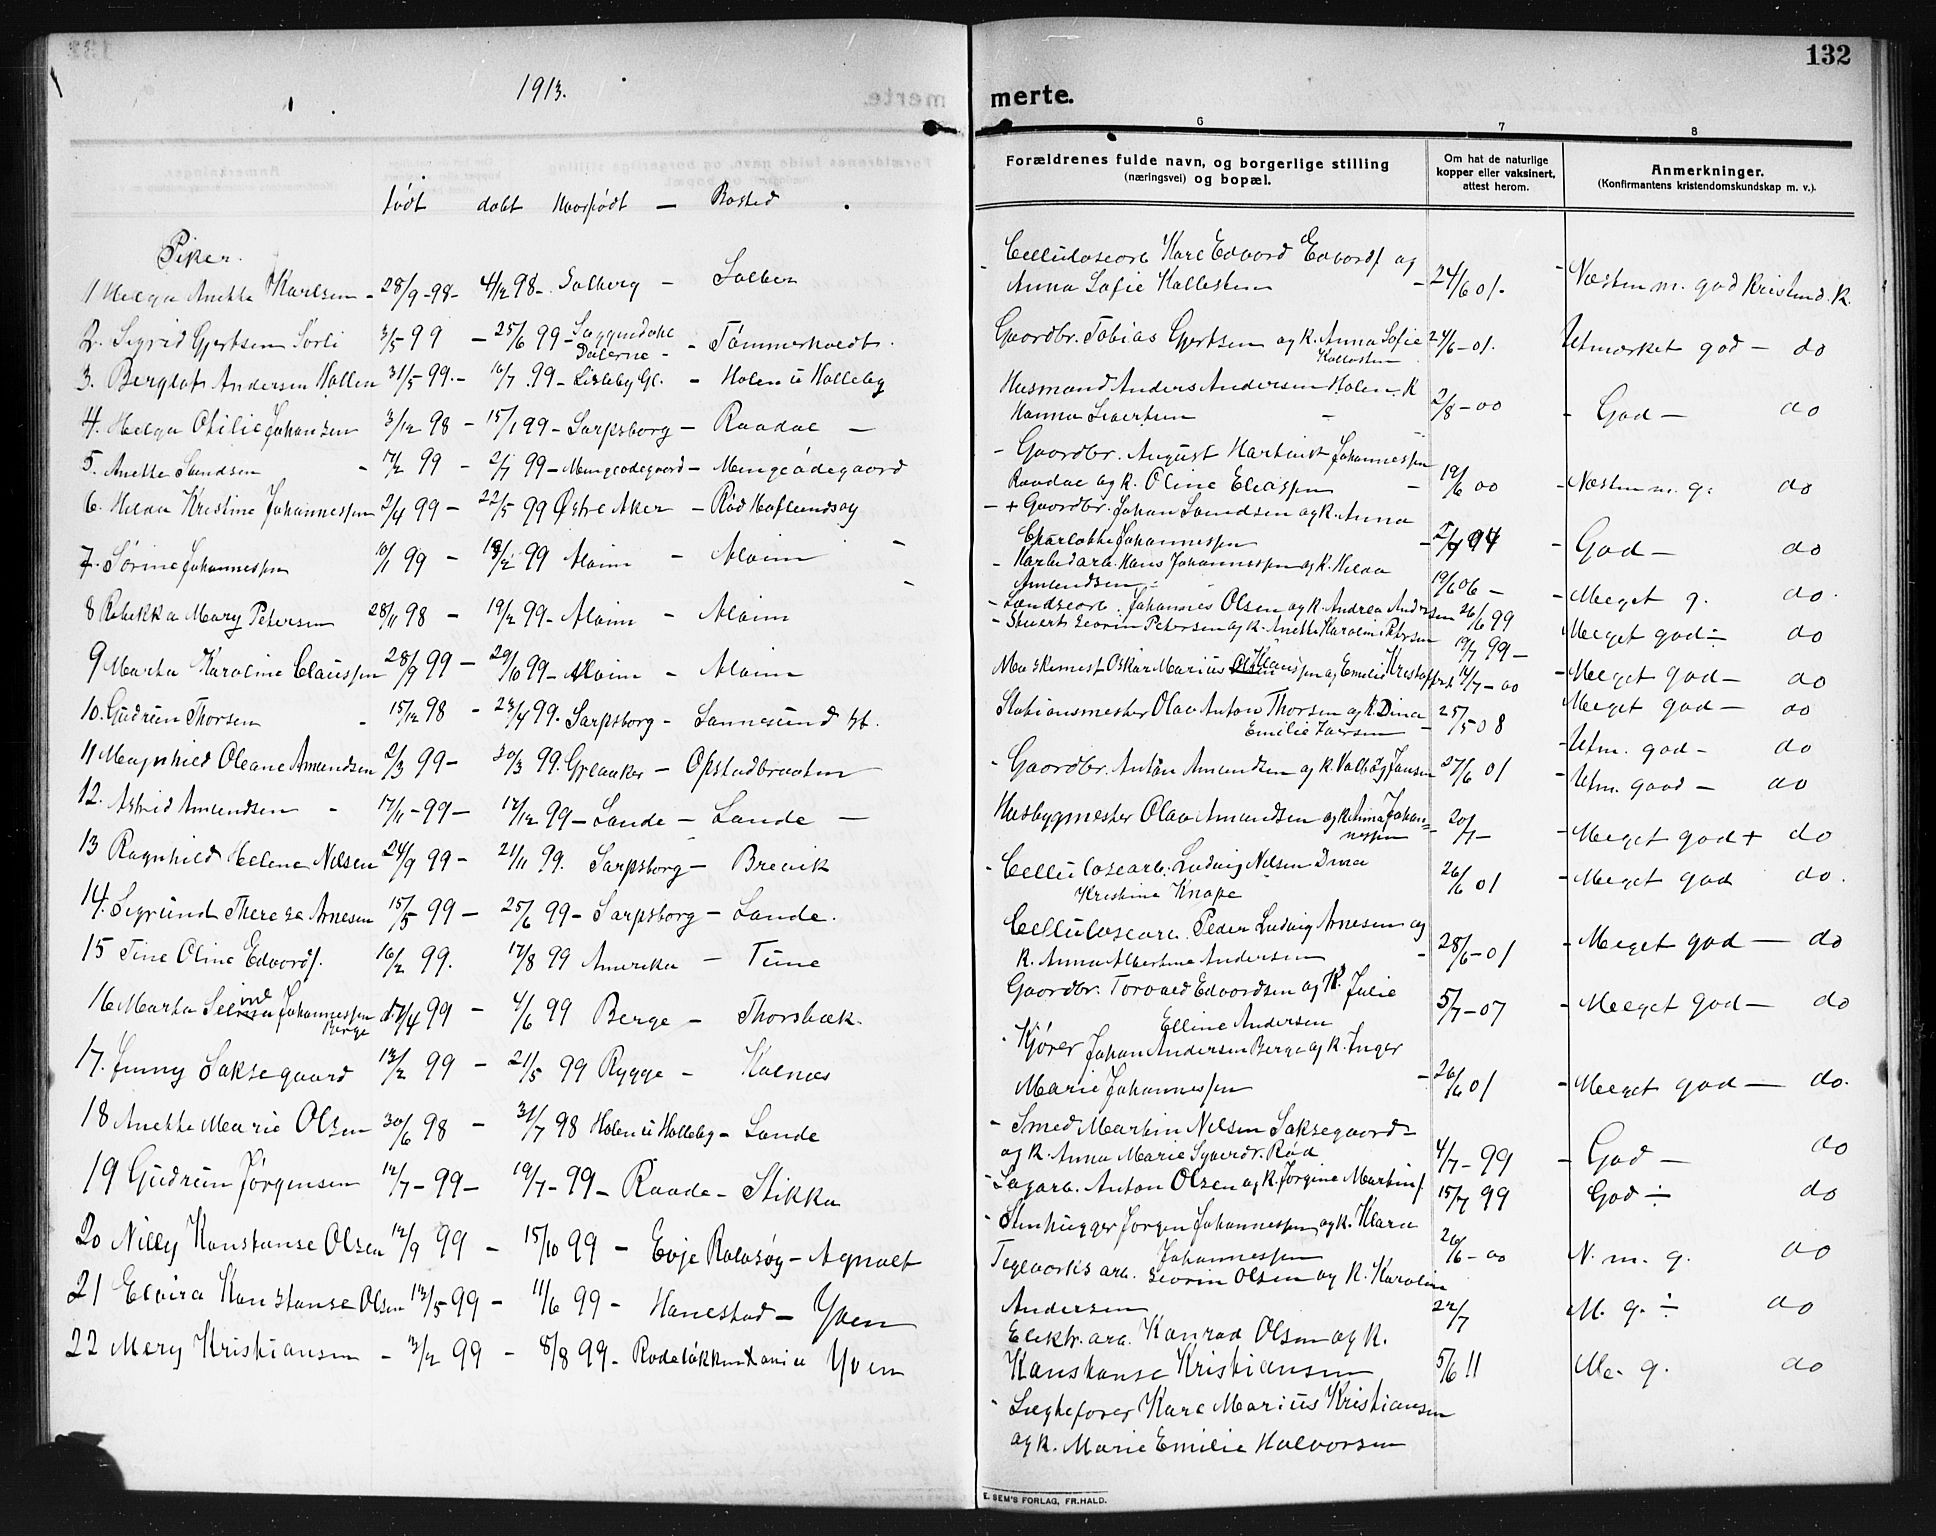 132
1913.
merte.
6 7 8
Forældrenes fulde navn, og borgerlige stilling
(næringsvei) og bopæl.
Om hat de naturlige
kopper eller vaksinert,
attest herom.
Anmerkninger.
(Konfirmantens kristendomskundskap m. v.).
født døbt Hvorfødt — Bosted
Piker.
1 Helga Anette Karlsen - 28/9 - 98 - 4/12 98 - Solberg -
2. Sigrid Gjertsen Sørli 3/5 99 - 25/6 99 -
3. Bergliot Andersen Hollen 31/5 99 - 16/7 99 - Lisleby Gl. - Holen i Holleby
4. Helga Otilie Johansen 3/12 98 - 15/1 99 - Sarpsborg - Raadal -
5. Anette 17/2 99 - 2/7 99 - Mingeødegaard - Mingeødegaard
6. Hilda Kristine Johannessen 2/4 99 - 22/5 99 Østre Aker - Rød Haflundsøy
7. Sørine Johannessen 10/1 99 - 19/2 99 Alvim - Alvim -
8 Rebekka Mary Petersen 28/11 98 - 19/2 99 - Alvim - Alvim
9 Marta Karoline Claussen 28/9 99 - 29/10 99 - Alvim - Alvim
10. Gudrun Thorsen - 15/12 98 - 23/4 99. Sarpsborg - Sannesund st.
11 Magnhild Oleane Amundsen 2/3 99 - 30/3 99. Greaaker - Opstadbraaten
12. Astrid Amundsen - 17/11 - 99 - 17/12 99 - Lande - Lande -
13 Ragnhild Helene Nilsen 24/9 99 - 21/11 99. Sarpsborg - Brevik
14. Sigrund Therese Arnesen 15/5 99 - 25/6 99 - Sarpsborg - Lande.
15 Tine Oline Edvards. 16/2 99. 17/8 99 Amerika - Tune
16 Marta Seline Johannessen Berge 17/4 99 - 4/6 99 Berge - Thorsbæk.
17. Jenny Saksegaard 13/2 99 - 21/5 99 Rygge - Kalnæs
18 Anette Marie Olsen 30/6 98 - 31/7 98 Holen i Holleby - Lande
19 Gudrun Jørgensen 12/7 - 99 - 19/7 - 99 - Raade - Stikka
20 Nilly Konstanse Olsen 12/9 99 - 15/10 99 - Evje Rolvsøy - Agnalt
21 Elvira Konstanse Olsen 13/5 99 - 11/6 99 - Hanestad - Yven
22 Mery Kristiansen - 3/2 99 - 8/8 99 - Rodeløkken Kania Yven
Celluloseorb Karl Edvard Edvards og
Anna Sofie Kallesten - 24/6 01. - Næsten m. god Kristend. K.
Gaardbr. Tobias Gjertsen og K. Anna Sofie
Kallesten 24/6 - 01. Utmerket god - do
Husmand Anders Andersen Holen. K
Hanna Sivertsen - 2/8 - 00 - God - do
- Gaardbr. August Hartvik Johannessen
Raadal og K. Oline Eliassen - 19/6 00 - Næsten m. g. do
- + Gaardbr. Johan og K. Anna
Charlotte Johannessen - God - do
- Hans Johannessen og K. Hilda
Amundsen - 19/6 06 - - Meget g. do.
- Johannes Olsen og K. Andrea Andersen 26/6 99 Meget god - do
- Stuert Severin Petersen og K. Anette Karolin Petersen 19/7 99 - - Meget god - do
Maskinmest Oskar Marius Klaussen og Emelie 14/7 - 00 Meget god - do
Stationsmester Olav Anton Thorsen og K. Dina
Emilie - 25/5 08 - Utm. god - do
- Gaardbr. Anton Amundsen og K. Valborg Jansen 27/6 01 - Utm. good - do
Husbygmester Olav Amundsen og K. Anna Johan-
nessen - 20/7 - - Meget god + do
- Cellulosearb. Ludvig Nilsen Dina
Kristina Knape 26/6 01 - Meget god do.
Cellulosearb. Peder Ludvig Arnesen og
K. Anna Albertine Andersen - 28/6 - 01 - Meget god - do
Gaardbr. Torvald Edvardsen og K. Julie
Elline Andersen 5/7 - 07 - Meget god - do
- Kjører Johan Andersen Berge og K. Inger
Marie Johannessen - 26/6 01 - Meget god - do.
- Smed Martin Nilsen Saksegaard -
og K. Anna Marie Syverdr. Rød 4/7 - 99 - God - do
- Sagarb. Anton Olsen og K. Jørgine Martins 15/7 99 God - do
- Stenhugger Jørgen Johannessen og K. Klara
Johannessen 26/6 - 00 N. m. g. do
Teglverks arb. Severin Olsen og K. Karolin
Andersen 22/7 M. g. - do
Elektr. arb. Konrad Olsen og K.
Konstanse Kristiansen 5/6 11 M. g. do
- Karl Marius Kristiansen
og K. Marie Emilie Halvorsen
E. SEM'S FORLAG, FR.HALD.